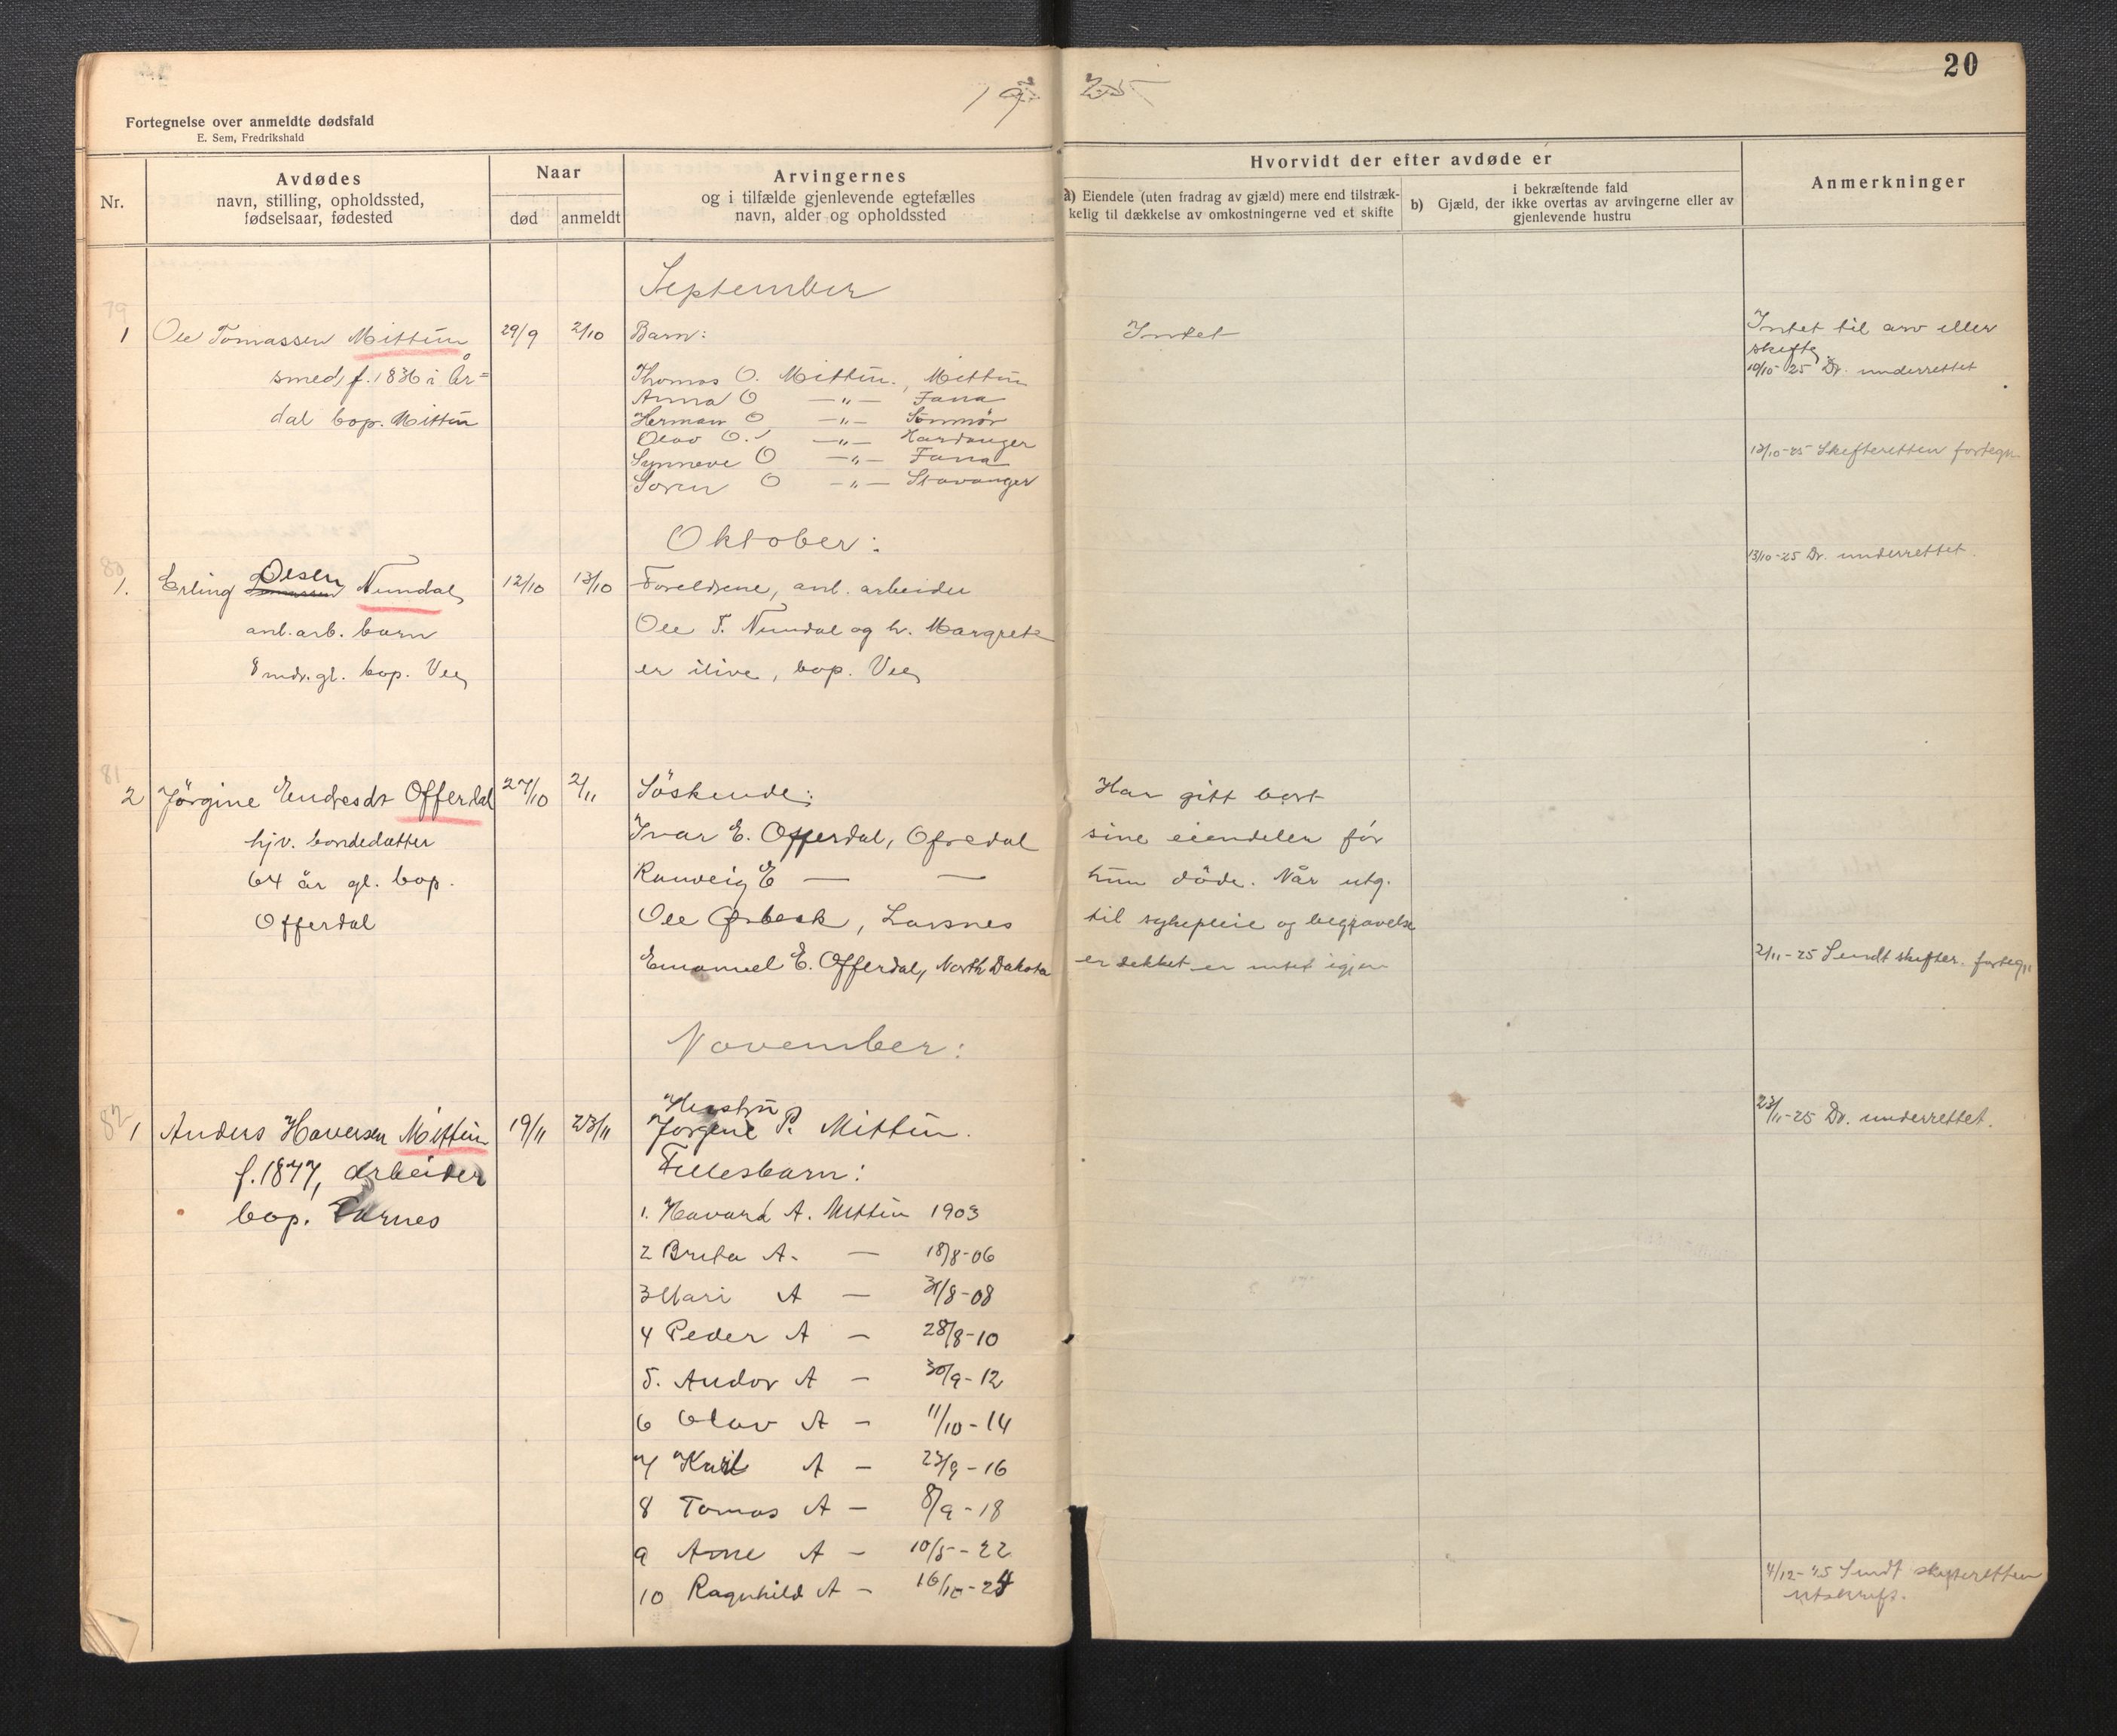 20
19 25
Fortegnelse over anmeldte dødsfald
E. Sem, Fredrikshald
Nr.
Avdødes
navn, stilling, opholdssted,
fødselsaar, fødested
Naar
død
anmeldt
Arvingernes
og i tilfælde gjenlevende egtefælles
navn, alder og opholdssted
Hvorvidt der efter avdøde er
a) Eiendele (uten fradrag av gjæld) mere end tilstræk-
kelig til dækkelse av omkostningerne ved et skifte
i bekræftende fald
b) Gjæld, der ikke overtas av arvingerne eller av
gjenlevende hustru
Anmerkninger
September
79
1 Ole Tomassen Mittun 29/9 2/10 Barn: Intet Intet til arv eller
skifte
smed, f. 1836 i År= Thomas O. Mittun, Mittun 10/10 25 Dr. underrettet
Anna O —"— Fana
dal bop. Mittun Herman O —"— Sönmör
Olav O. —"— Hardanger
Synneve O —"— Fana 13/10-25 Skifteretten fortegn
Soren O —"— Stavanger
Oktober:
13/10-25 Dr. underrettet.
80
Olsen
1. Erling Nundal, 12/10 13/10 Foreldrene, anl. arbeider
anl. arb. barn Ole T. Nundal og h. Margrete
8 mdr. gl. bop. Vee er ilive, bop. Vee
81
2 Jörgine Endresdt Offerdal 27/10 2/11 Söskende: Har gitt bort
hjv. bondedatter Ivar E. Offerdal, Ofredal sine eiendeler för
64 år gl. bop. Ranveig E — — hun döde. Når utg.
Offerdal Ole Ørbeck, Larsnes til sykepleie og begravelse
Emanuel E. Offerdal, North Dakota er dekket er intet igjen 2/11-25 Sendt skifter. fortegn
November:
82
Hustru
1 Anders Haversen Mittun 19/11 23/11 Jorgene P. Mittun. 23/11-25 Dr. underrettet.
f. 1877, arbeider Fellesbarn:
bop. Farnes 1. Havard A. Mittun 1903
2 Brita A. — 18/8-06
3 Mari A — 31/8-08
4 Peder A — 28/8-10
5. Andor A — 30/9-12
6 Olav A — 11/10-14
7 A — 23/9-16
8 Tomas A — 8/9-18
9 Arne A — 10/5-22
10 Ragnhild A — 16/10-24
4/12-25 Sendt skifteretten
utskrift.